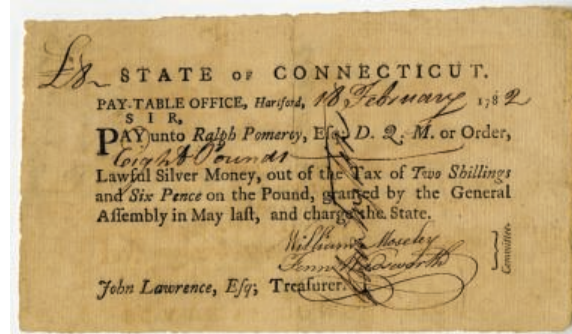 £8
STATE OF CONNECTICUT.
PAY-TABLE OFFICE, Hartford, 18 February 1782
SIR,
PAY unto Ralph Pomeroy, Esq; D. Q. M. or Order,
Eight Pounds
Lawful Silver Money, out of the Tax of Two Shillings
and Six Pence on the Pound, granted by the General
Assembly in May last, and charge the State.
William Moseley
Fenn Wadsworth
Committee.
John Lawrence, Esq; Treasurer.